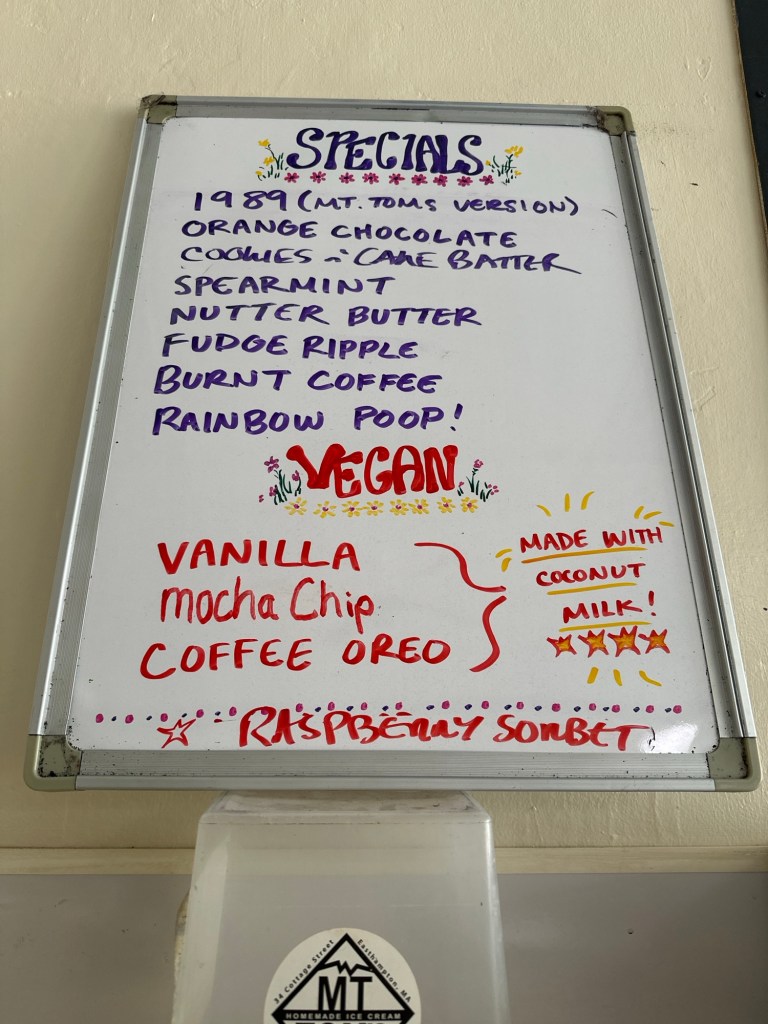 SPECIALS
1989 (MT. TOMS VERSION)
ORANGE CHOCOLATE
COOKIES n' CAKE BATTER
SPEARMINT
NUTTER BUTTER
FUDGE RIPPLE
BURNT COFFEE
RAINBOW POOP!
VEGAN
VANILLA
mocha Chip
COFFEE OREO
MADE WITH
COCONUT
MILK!
RASPBERRY SORBET
34 Cottage Street
Easthampton, MA
MT
HOMEMADE ICE CREAM